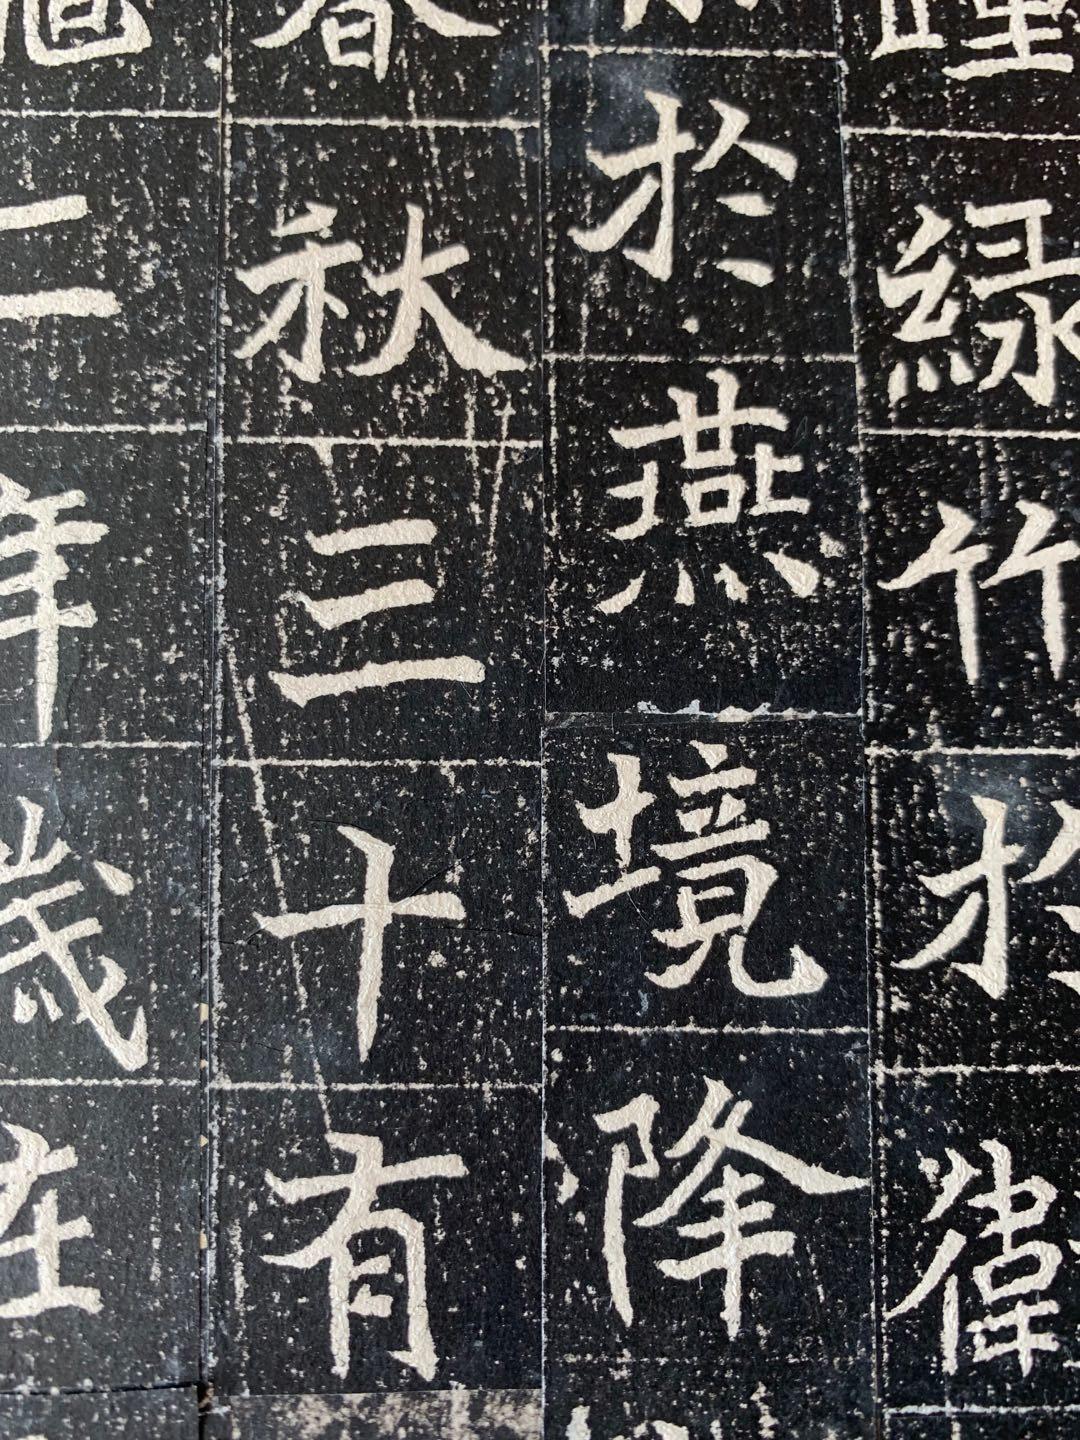 緑竹於衛
於燕境降
春秋三十有
二年歲在